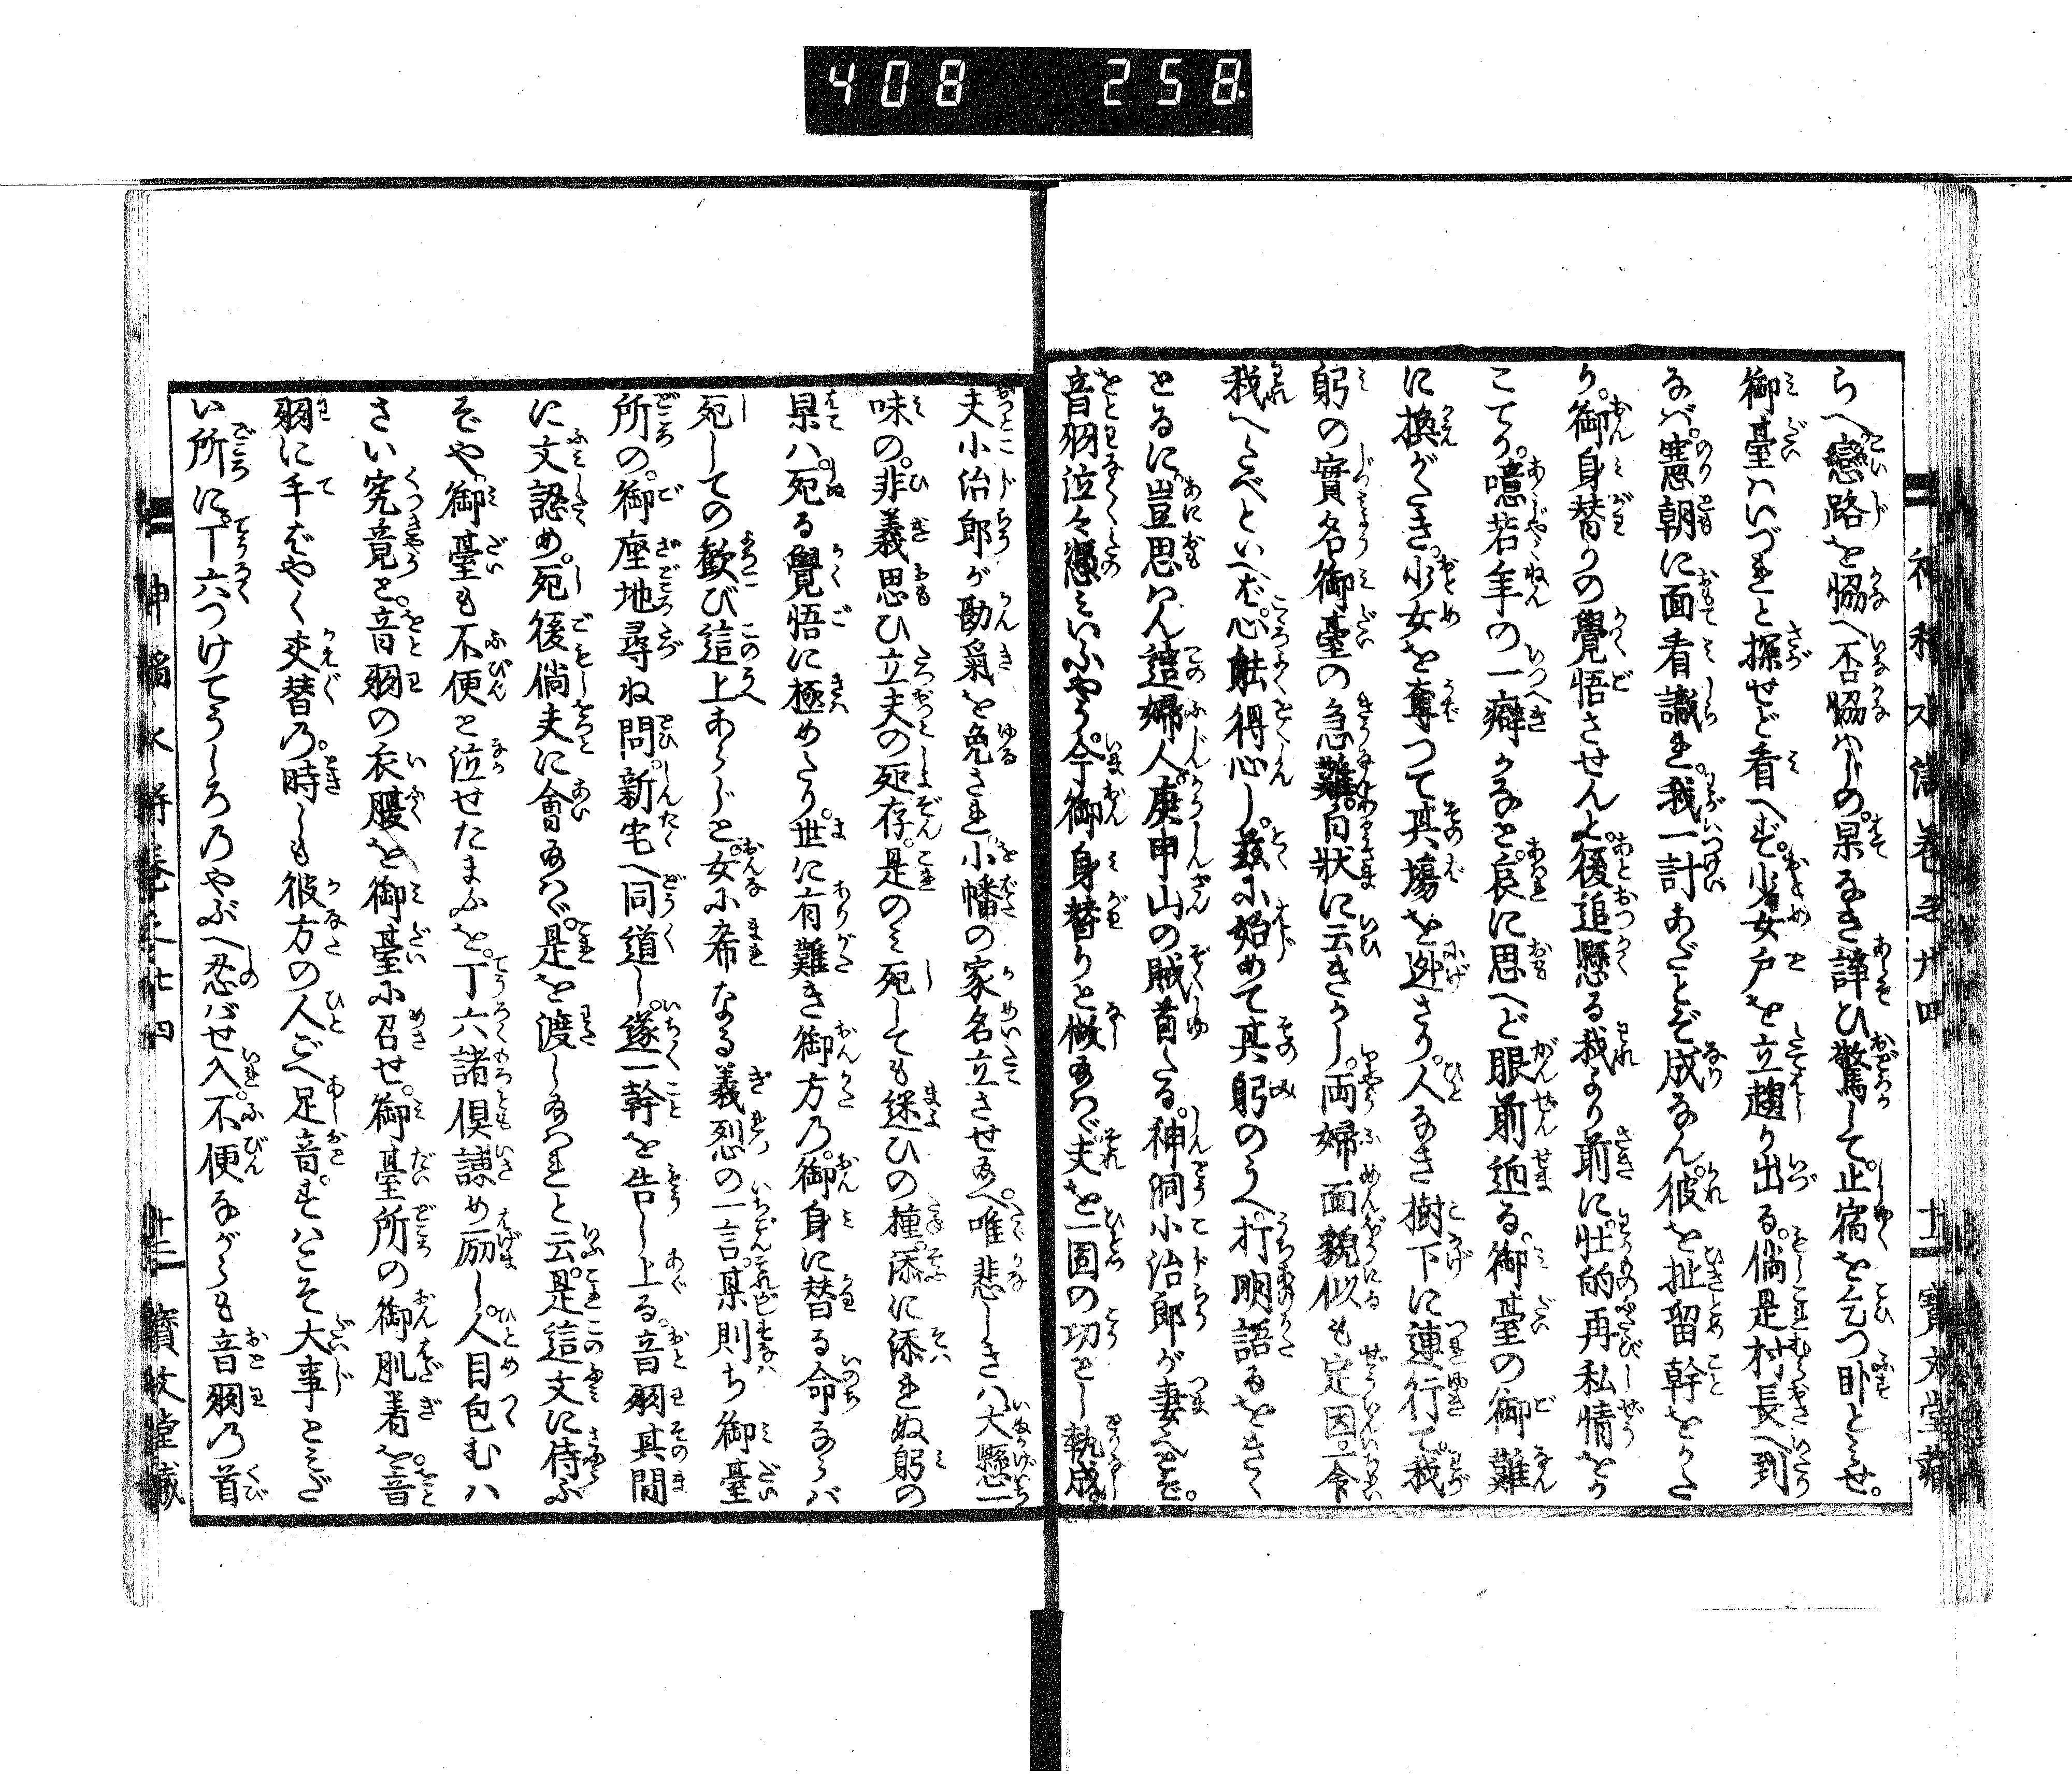 408 258
神稲水滸巻之廿四 十二 寶文堂藏
らへ戀路を恊へ否恊はじめ果なき諍ひ驚して止宿を乞つ卧とみせ。
御臺はいづれと探せど看へず。少女戸を立趨り出る。倘是村長へ到
なば。憲朝に面看識れ。我一計あだとぞ成なん。彼を扯留幹をかた
り。御身替りの覺悟させんと。後追懸る我より前に。壮的再私情をか
こてり。噫若年の一癖かなと。哀に思へど眼前迫る。御臺の御難
に換がたき。少女を奪つて其塲を迯さり。人なき樹下に連行て。我
躬の實名御臺の急難。白狀に云きかし。両婦面貌似も定因。一命
我へたべといへば。心能得心し。茲に始めて其躬のうへ。打明語るをきく
とるに。豈思はん這婦人。庚申山の賊首たる。神洞小治郎が妻なりとぞ。
音羽泣々憑みいふやう。今御身替りと做給はゞ。夫を一囬の功とし執成
夫小治郎が勘氣を免され。小幡の家名立させ給へ。唯悲しきは犬懸一
味の。非義思ひ立夫の死存。是のみ死しても迷ひの種。添に添れぬ躬の
果は。死る覺悟に極めたり。世に有難き御方の。御身に替る命ならバ
死しての歓び這上あらじと。女に希なる義烈の一言。某則ち御臺
所の。御座地尋ね問。新宅へ同道し。遂一幹を告し上る。音羽其間
に文認め。死後倘夫に會給はゞ。是を渡し給はれと云。是這文に侍ふ
ぞや。御臺も不便と泣せたまふを。丁六諸倶諫め励し。人目包むハ
さい究竟と。音羽の衣服を御臺に召せ。御臺所の御肌着を音
羽に手ばやく夾替の。時しも彼方の人ごへ足音。すはこそ大事とみざ
い所に。丁六つけてうしろのやぶへ忍バせ入。不便ながらも音羽の首
神稲水滸巻之廿四 十二 寶文堂藏